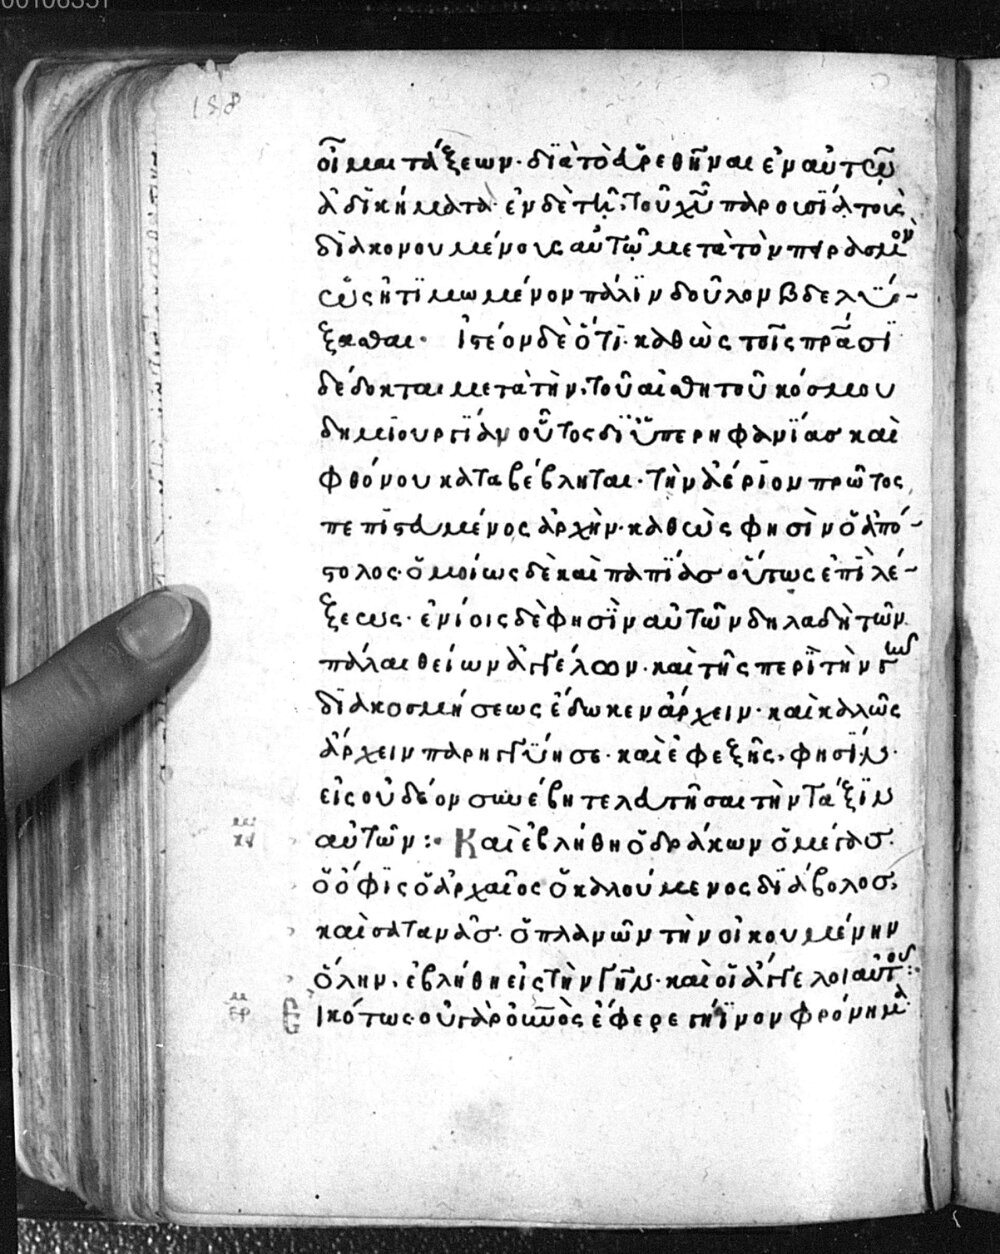 00106351
158
οἶμαι τάξεων· διὰ τὸ εὑρεθῆναι ἐν αὐτῷ
ἀδικήματα· ἐν δὲ τῇ τοῦ χῦ παρουσίᾳ τοὺς
διακονουμένους αὐτῷ μετὰ τὸν πειρασμὸν
ὡς ἠτιμωμένον πάλιν δοῦλον βδελύ-
ξασθαι· ἰστέον δὲ ὅτι καθὼς τοῖς πρᾶσι
δέδοκται μετὰ τὴν τοῦ αἰσθητοῦ κόσμου
δημιουργίαν οὗτος δι' ὑπερηφανίασ καὶ
φθόνον καταβέβληται· τὴν ἀέριον πρῶτος
πεπιστευμένος ἀρχὴν· καθὼς φησὶν ὁ ἀπό-
στολος· ὁμοίως δὲ καὶ παπίασ οὕτως ἐπὶ λέ-
ξεως· ἐνίοις δὲ φησὶν αὐτῶν δηλαδὴ τῶν
πάλαι θείων ἀγγέλων· καὶ τῆς περὶ τὴν γῆν
διακοσμήσεως ἔδωκεν ἄρχειν· καὶ καλῶς
ἄρχειν παρηγγύησε· καὶ ἐφεξῆς φησίν·
εἰς οὐδέον συνέβη τελευτῆσαι τὴν τάξιν
αὐτῶν: Καὶ ἐβλήθη ὁ δράκων ὁ μέγασ·
ὁ ὄφις ὁ ἀρχαῖος ὁ καλούμενος διάβολοσ,
καὶ σατανᾶσ· ὁ πλανῶν τὴν οἰκουμένην
ὅλην, ἐβλήθη εἰς τὴν γῆν· καὶ οἱ ἄγγελοι αὐτοῦ:
Εἰκότως· οὐ γὰρ ὁ οὐνὸς ἔφερε γήϊνον φρόνημα
κει
ερ